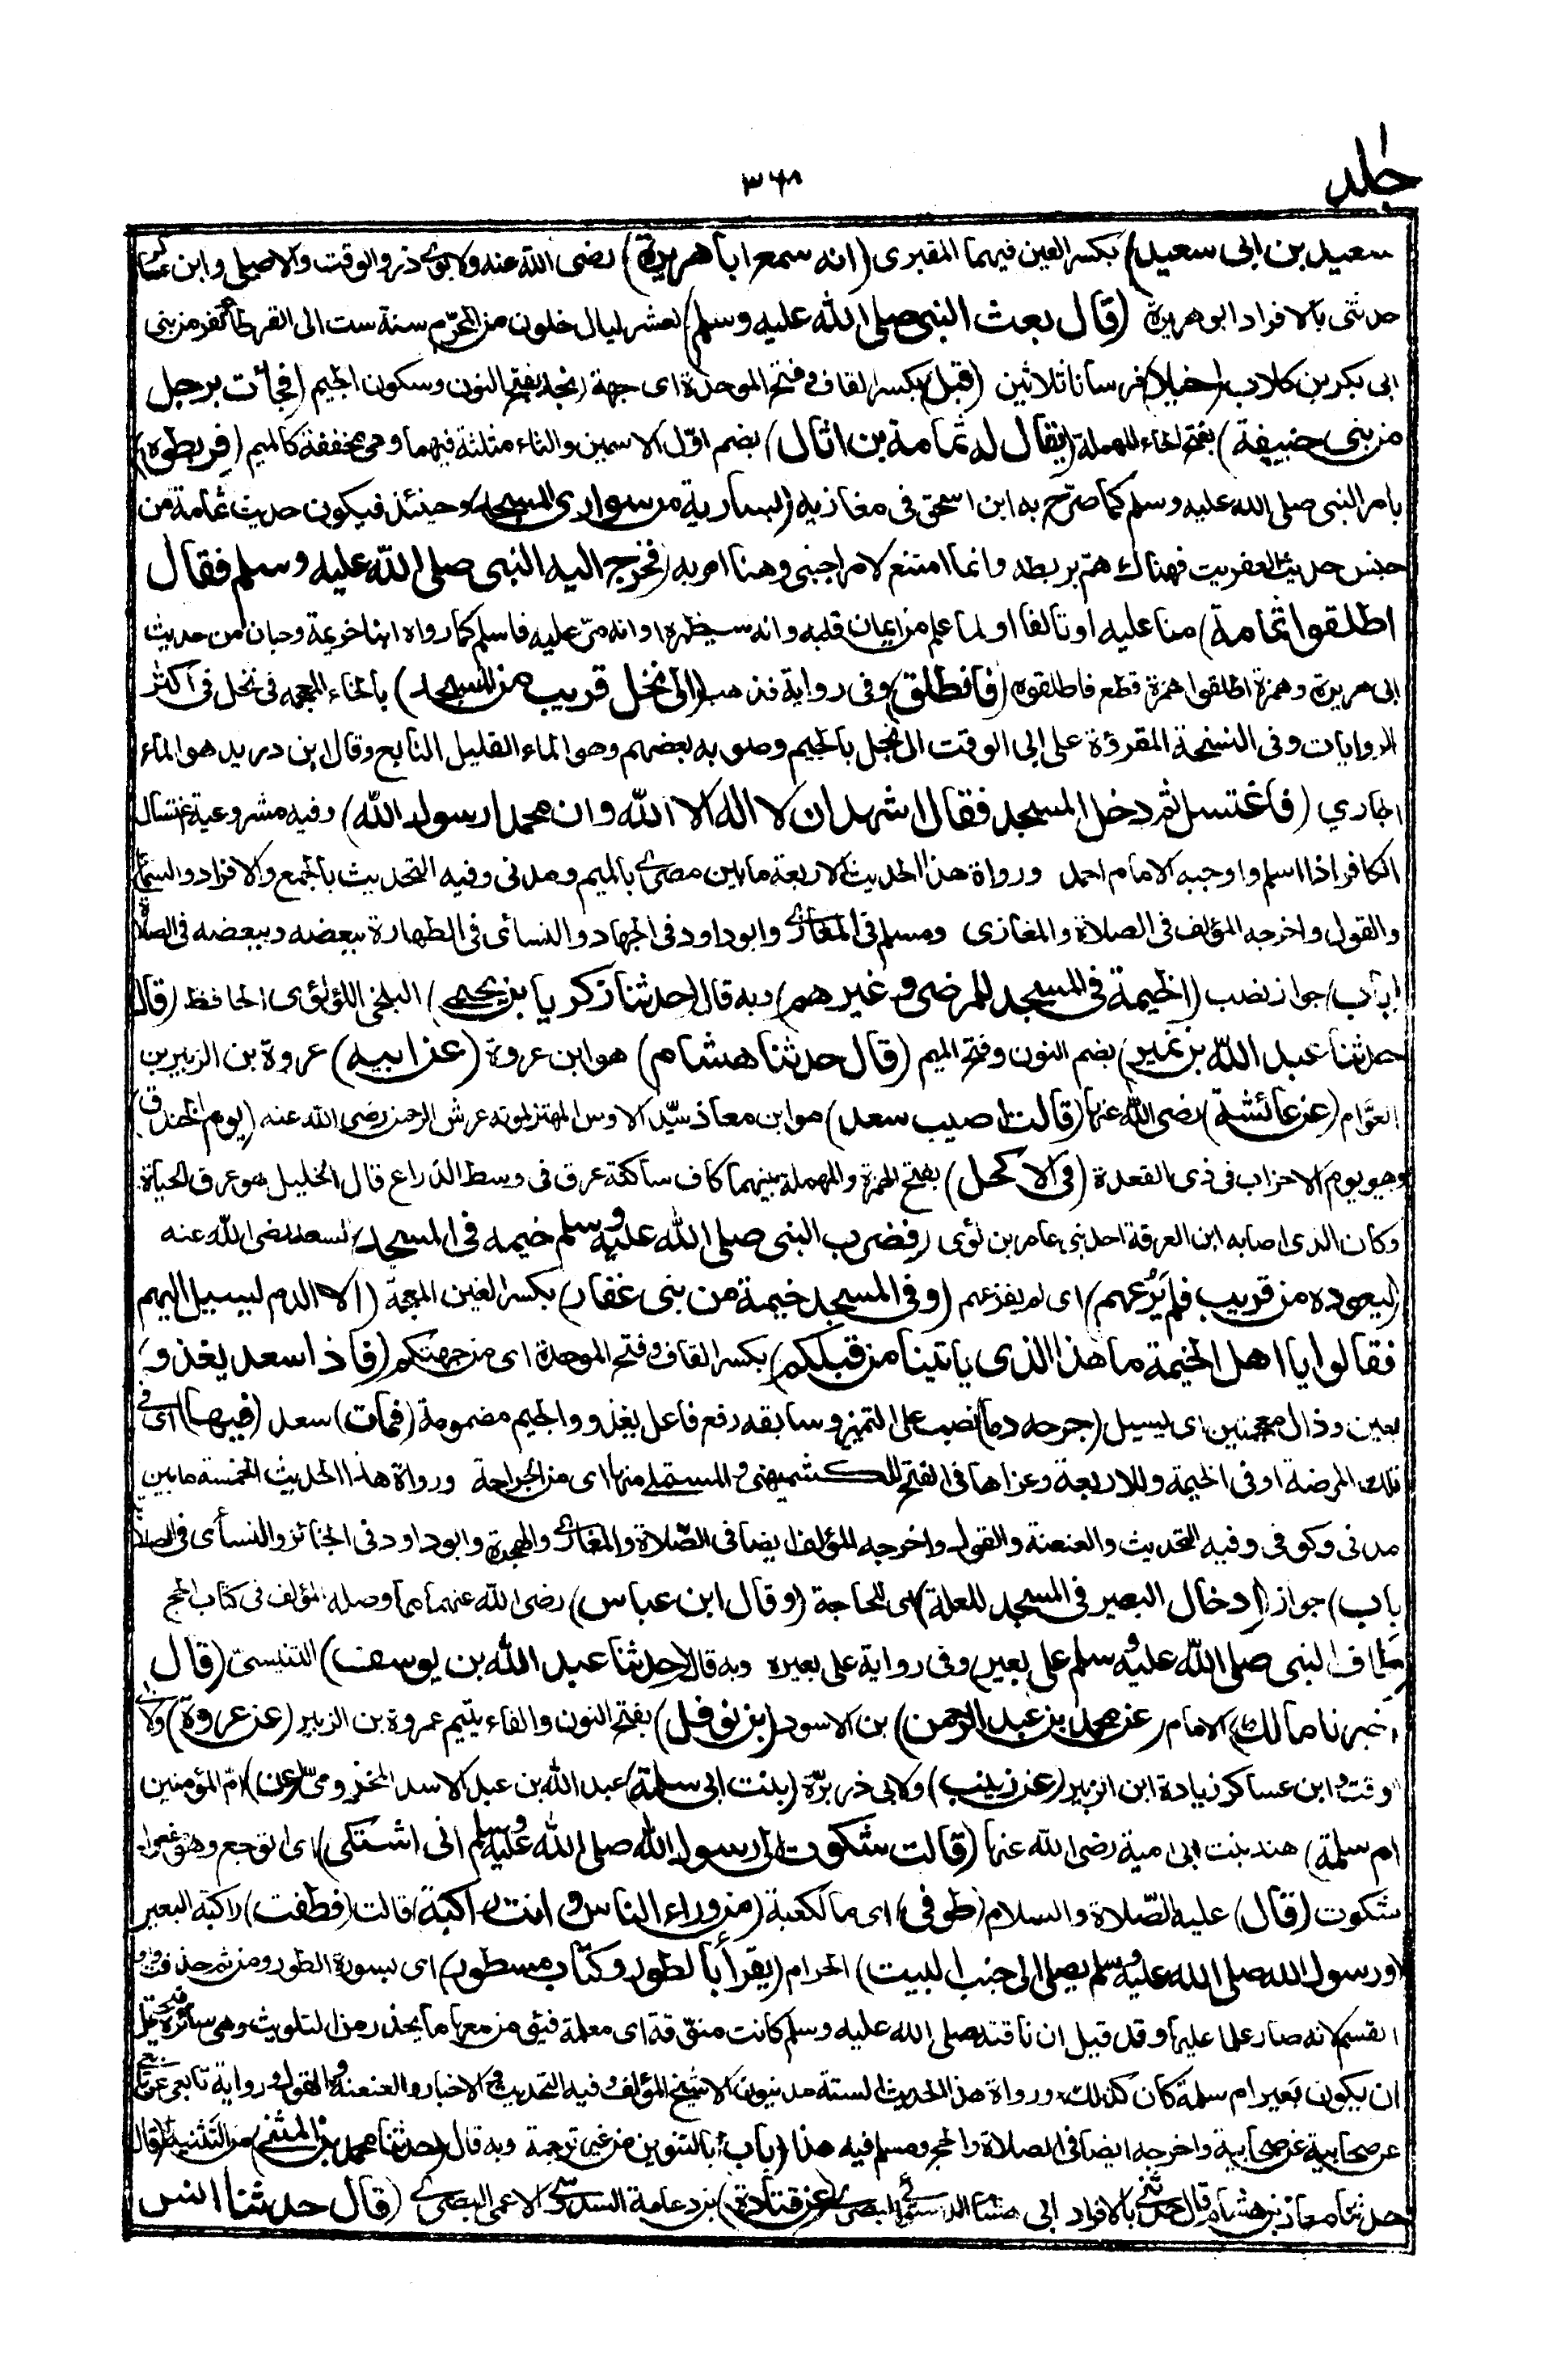 جلد ٣٦٨
سعيد بن ابى سعيد) بكسر العين فيهما المقبرى (انه سمع ابا هريرة) رضى الله عنه ولابوى ذر والوقت والاصيلى وابن عساكر
حدثنى بالافراد ابو هريرة (قال بعث النبى صلى الله عليه وسلم) لعشر ليال خلون من المحرّم سنة ست الى القرطا نفر من بنى
ابى بكر بن كلاب (خيلا) فرسانا ثلاثين (قبل) بكسر القاف وفتح الموحدة اى جهة (نجد) بفتح النون وسكون الجيم (فجأت برجل
من بنى حنيفة) بفتح الحاء المهملة (يقال له ثمامة بن اثال) بضم اوّل الاسمين والثاء مثلثة فيهما وهى مخففة كالميم (فربطوه)
بامر النبى صلى الله عليه وسلم كما صرّح به ابن اسحق فى مغازيه (بسارية من سوارى المسجد) وحينئذ فيكون حديث ثمامة من
جنس حديث العفريت فهناك همّ بربطه وانما امتنع لامر اجنبى وهنا امر به (فخرج اليه النبى صلى الله عليه وسلم فقال
اطلقوا ثمامة) منا عليه او تالفا او لما علم من ايمان قلبه وانه سيظهره او انه مرّ عليه فاسلم كما رواه ابنا خزيمة وحبان من حديث
ابى هريرة وهمزة اطلقوا همزة قطع فاطلقوه (فانطلق) وفى رواية فذهب (الى نخل قريب من المسجد) بالخاء المعجمة فى نخل فى اكثر
الروايات وفى النسخة المقرؤة على ابى الوقت الى نجل بالجيم وصوّبه بعضهم وهو الماء القليل النابع وقال ابن دريد هو الماء
الجارى (فاغتسل ثم دخل المسجد فقال اشهد ان لا اله الا الله وان محمدا رسول الله) وفيه مشروعية غتسال
الكافر اذا اسلم واوجبه الامام احمد ورواة هذا الحديث الاربعة ما بين مصرى بالميم ومدنى وفيه التحديث بالجمع والافراد والسماع
والقول واخرجه المؤلف فى الصلاة والمغازى ومسلم فى المغازى وابو داود فى الجهاد والنسائى فى الطهارة ببعضه وببعضه فى الصلاة
(باب) جواز نصب (الخيمة فى المسجد للمرضى وغيرهم) وبه قال (حدثنا زكريا بن يحيى) البلخى اللؤلؤى الحافظ (قال
حدثنا عبد الله بن نمير) بضم النون وفتح الميم (قال حدثنا هشام) هو ابن عروة (عن ابيه) عروة بن الزبير بن
العوّام (عن عائشة) رضى الله عنها (قالت اصيب سعد) هو ابن معاذ سيّد الاوس المهتز لموته عرش الرحمن رضى الله عنه (يوم الخندق)
وهو يوم الاحزاب فى ذى القعدة (فى الاكحل) بفتح الهمزة والمهملة بينهما كاف ساكنة عرق فى وسط الذراع قال الخليل هو عرق الحياة
وكان الذى اصابه ابن العرقة احد بنى عامر بن لؤى (فضرب النبى صلى الله عليه وسلم خيمة فى المسجد) لسعد رضى الله عنه
(ليعوده من قريب فلم يَرُعهم) اى لم يفزعهم (وفى المسجد خيمة من بنى غفار) بكسر الغين المعجمة (الا الدم ليسيل اليهم
فقالوا يا اهل الخيمة ما هذا الذى ياتينا من قبلكم) بكسر القاف وفتح الموحدة اى من جهتكم (فاذا سعد يغذو
بغين وذال معجمتين اى يسيل (جرحه دما) نصب على التمييز وسابقه رفع فاعل يغذو والجيم مضمومة (فمات) سعد (فيها) اى فى
تلك المرضة او فى الخيمة وللاربعة وعزاها فى الفتح للكشميهنى والمستملى منها اى من الجراحة ورواة هذا الحديث الخمسة ما بين
مدنى وكوفى وفيه التحديث والعنعنة والقول واخرجه المؤلف ايضا فى الصّلاة والمغازى والهجرة وابو داود فى الجنائز والنسأى فى الصلاة
(باب) جواز (ادخال البعير فى المسجد للعلة) اى للحاجة (وقال ابن عباس) رضى الله عنهما مما وصله المؤلف فى كتاب الحج
(طاف النبى صلى الله عليه وسلم على بعير) وفى رواية على بعيره وبه قال (حدثنا عبد الله بن يوسف) التنيسىّ (قال
اخبرنا مالك) الامام (عن محمد بن عبد الرحمن) بن الاسود (بن نوفل) بفتح النون والفاء يتيم عروة بن الزبير (عن عروة) ولابى
الوقت وابن عساكر زيادة ابن الزبير (عن زينب) ولابى ذر برّة (بنت ابى سلمة) عبد الله بن عبد الاسد المخزومىّ (عن) امّ المؤمنين
ام سلمة) هند بنت ابى امية رضى الله عنها (قالت شكوت الى رسول الله صلى الله عليه وسلم انى اشتكى) اى اتوجع وهو مفعول
شكوت (قال) عليه الصّلاة والسلام (طوفى) اى بالكعبة (من وراء الناس وانت راكبة) قالت (فطفت) راكبة البعير
(ورسول الله صلى الله عليه وسلم يصلى الى جنب البيت) الحرام (يقرأ بالطور وكتاب مسطور) اى بسورة الطور ومن ثم حذفت واو
القسم لانه صار علما عليها وقد قيل ان ناقته صلى الله عليه وسلم كانت منوّقة اى معلمة فيؤمن معها ما يحذر من التلويث وهى سائرة فيحتمل
ان يكون بعير ام سلمة كان كذلك ورواة هذا الحديث الستة مدنيون الا شيخ المؤلف وفيه التحديث والاخبار والعنعنة والقول ورواية تابعى عن تابعى
عن صحابية عن صحابية واخرجه ايضا فى الصلاة والحج ومسلم فيه هذا (باب) بالتنوين من غير ترجمة وبه قال (حدثنا محمد بن المثنى) من التثنية (قال
حدثنا معاذ بن هشام قال حدثنى) بالافراد (ابى) هشام الدستوائى البصرى (عن قتادة) بن دعامة السدوسىّ الاعمى البصرى (قال حدثنا انس